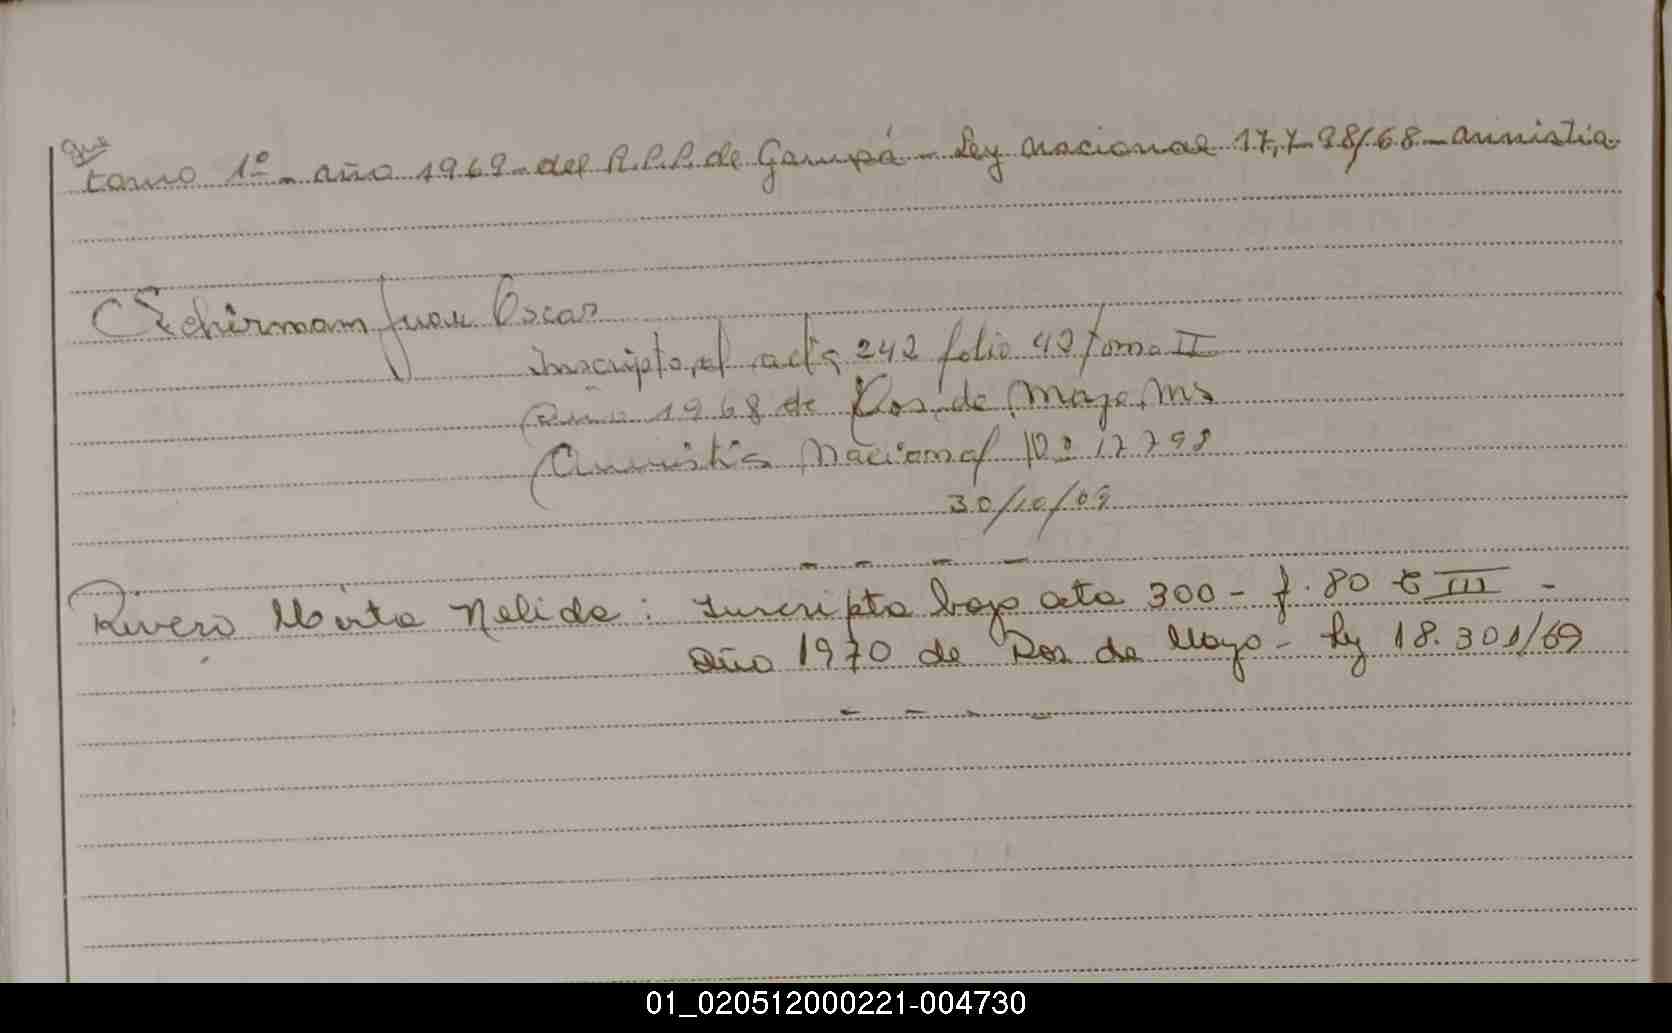 tomo 1º - año 1969 - del R.P.P. de Garupá - Ley Nacional 17,798/68 - amnistia
Schirmam Juan Oscar
Inscripto, al acta 242 folio 42 Tomo II
Año 1968 de Dos de Mayo, Ms
Amnistia Nacional Nº 17798
30/10/69
Rivero Mirta Nelida: Inscripta bajo acta 300 - f. 80 t III -
Año 1970 de Dos de Mayo - Ly 18.301/69
01_020512000221-004730